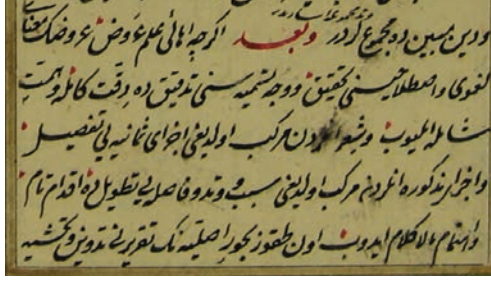 ودین مبین ده مجموع لردر وبعد اکرچه اهالئ علم عروض عروضک معنای
لغوی واصطلاحیسنی تحقیق ووجه تسمیه سنی تدقیق ده دقت کامله وهمت
شامله ایلیوب وشعر انلردن مرکب اولدیغی اجزای ثمانیه یی تفصیل
واجزای مذکوره انلردن مرکب اولدیغی سبب ووتد وفاصله یی تطویل ده اقدام تام
واهتمام مالاکلام ایدوب اون طقوز بحور اصلیه نک تقریرنی تدوین وتحشیه